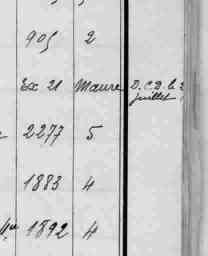 905 2
Ex 21 Maure D.C.D. le 2
juillet
2277 5
1883 4
1892 4